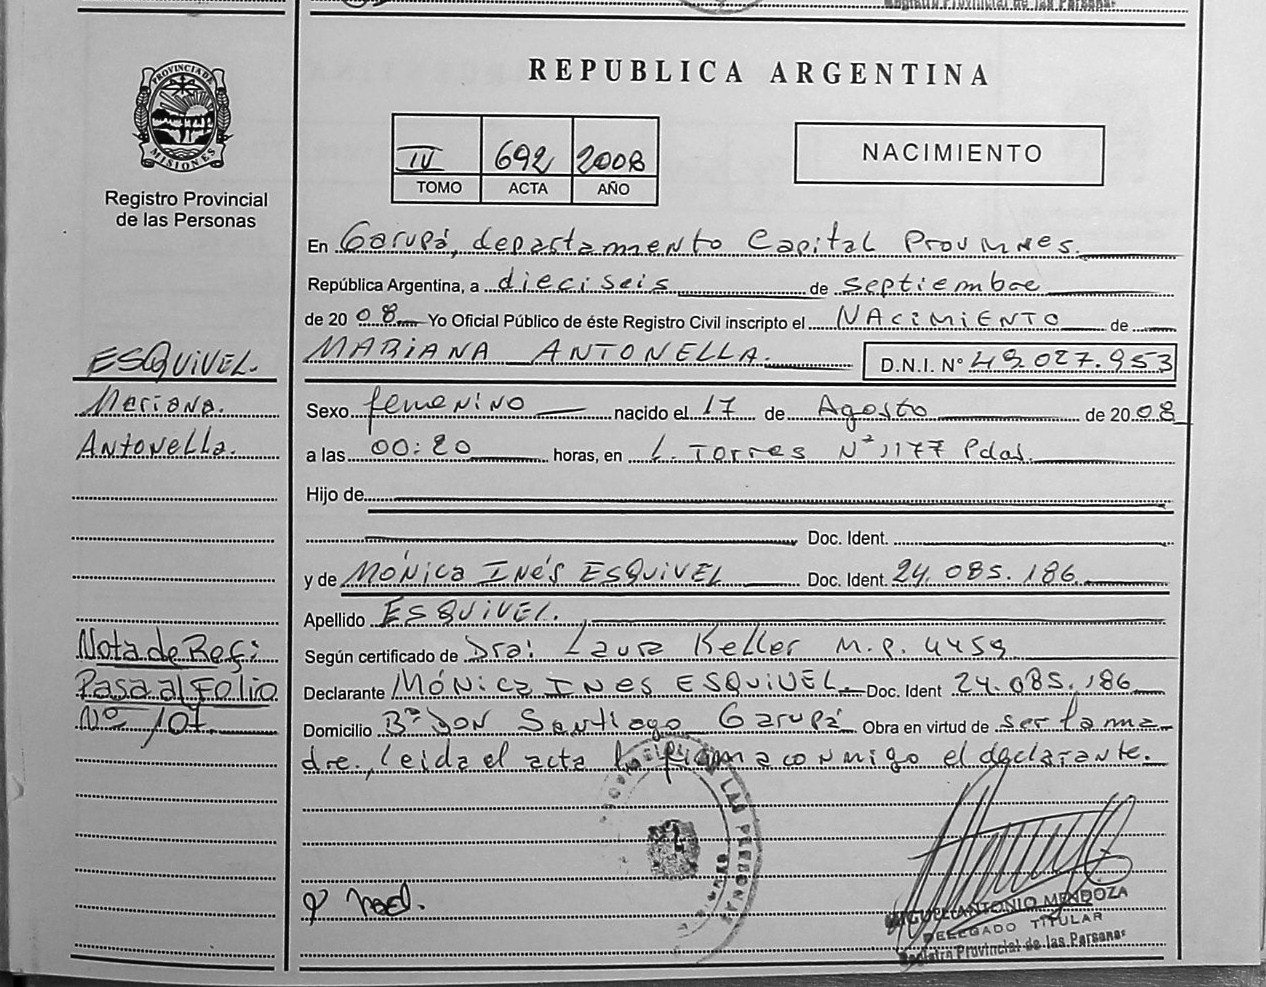 Registro Provincial de las Personas
PROVINCIA DE
MISIONES
Registro Provincial
de las Personas
REPUBLICA ARGENTINA
IV 692 2008
TOMO ACTA AÑO
NACIMIENTO
En Garupá, departamento Capital Prov Mnes.
República Argentina, a dieciseis de septiembre
de 2008 Yo Oficial Público de éste Registro Civil inscripto el NACIMIENTO de
MARIANA ANTONELLA. D.N.I. Nº 49.027.953
ESQUIVEL.
Mariana.
Antonella.
Sexo femenino nacido el 17 de Agosto de 2008
a las 00:20 horas, en L. Torres Nº 1177 Pdas.
Hijo de
Doc. Ident.
y de MÓNICA INÉS ESQUIVEL Doc. Ident. 24.085.186
Apellido ESQUIVEL.
Nota de Ref:
Pasa al Folio
Nº 107
Según certificado de Dra: Laura Keller M.P. 4459
Declarante MÓNICA INES ESQUIVEL Doc. Ident 24.085.186
Domicilio Bº DON Santiago Garupá Obra en virtud de ser la ma
dre, leida el acta la firma conmigo el declarante.
LAS PERSONAS
MIGUEL ANTONIO MENDOZA
DELEGADO TITULAR
Registro Provincial de las Personas